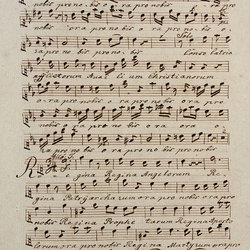 nobis pro no bis o ra pro nobis
nobis ora pro no bis ora pro nobis
ra pro no bis pro no bis. Conso latrix
afflictorum Auxi li um Christianorum
o ra pro nobis o ra pro nobis ora pro
nobis ora pro no bis ora pro
ora pro nobis ora pro nobis pro nobis
Re gina Regina Angelorum Re
gina Patriarcharum ora pro nobis ora pro
nobis Regina Prophe tarum Regina Aposto
lorum ora pro nobis Regina Martyrum ora pro